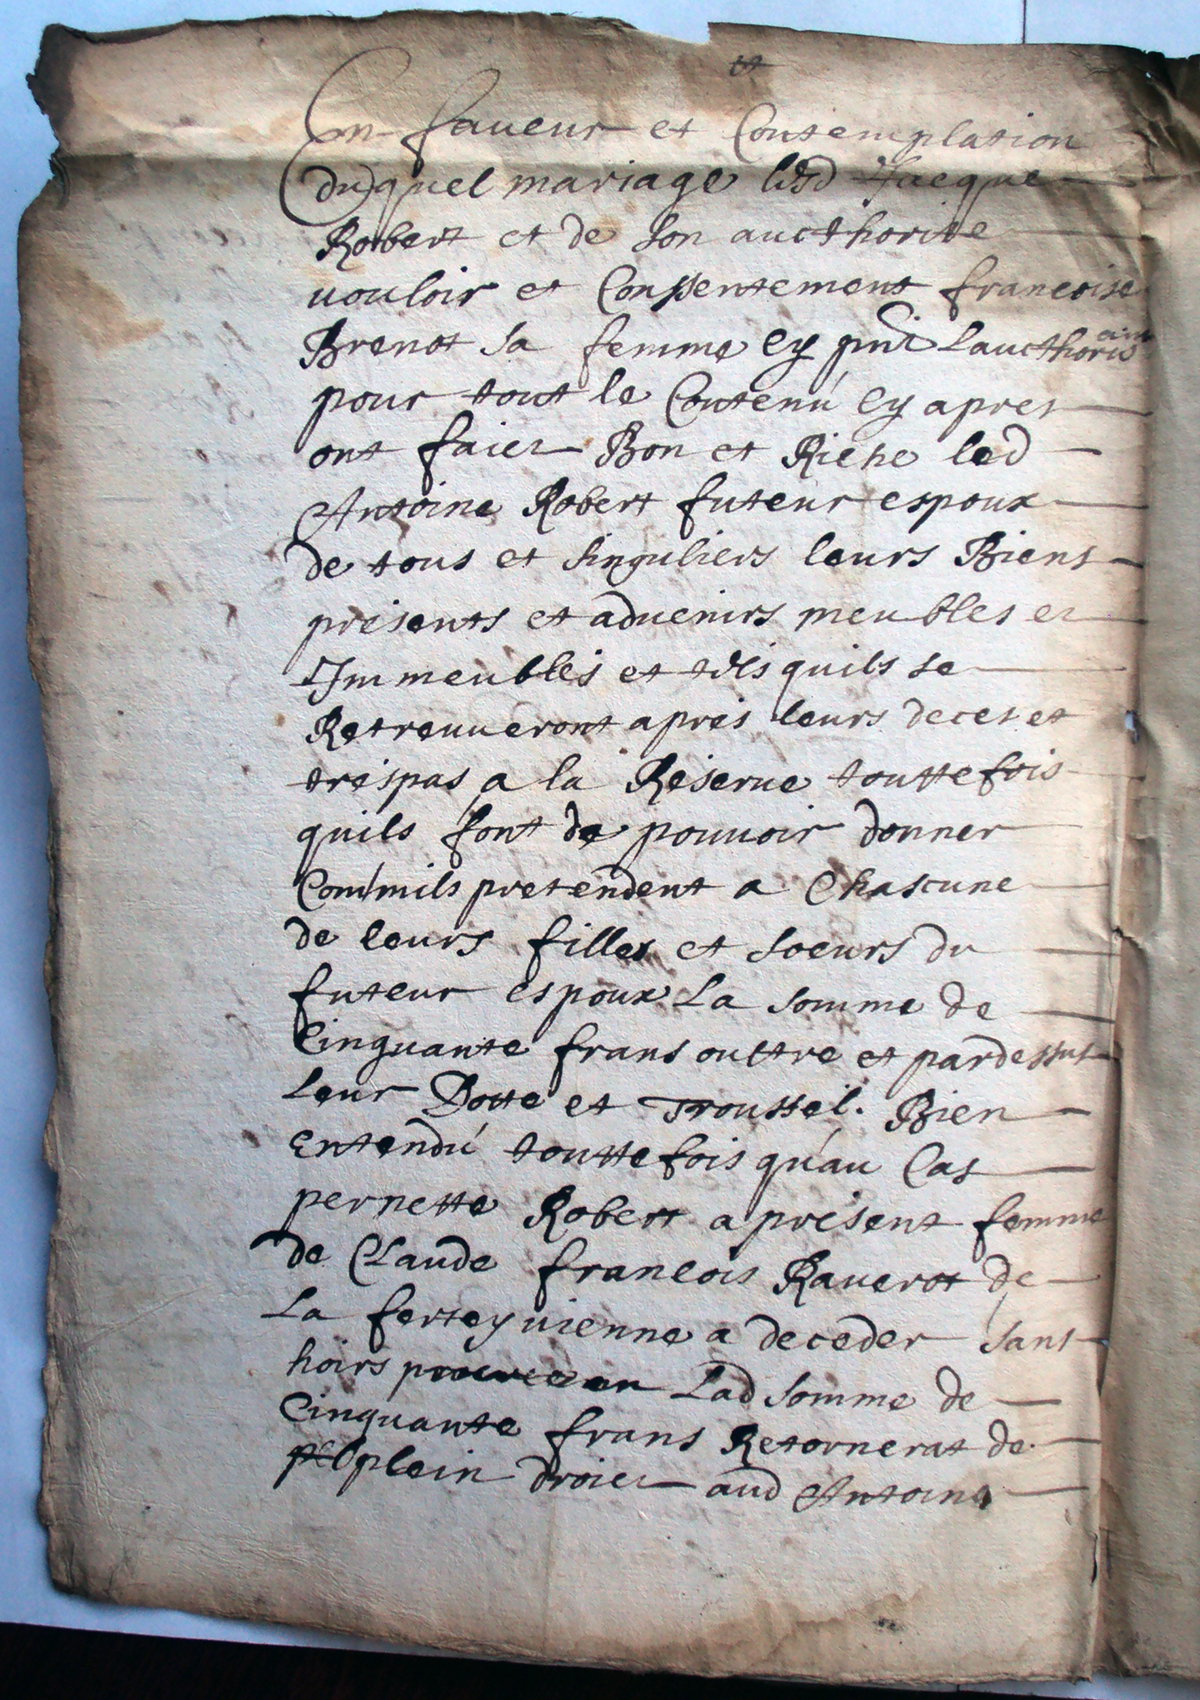 En faueur et Contemplation
duquel mariage led Jacque
Robert et de son aucthorite
vouloir et Conssentement francoise
Brenot sa femme cy pnt Laucthorisant
pour tout le Contenú cy apres
ont faict Bon et Riche led
Antoine Robert futeur espoux
de tous et singuliers leurs Biens
présents et aduenirs meubles et
Immeubles et tels quils se
Retreuueront aprés leurs deces et
tréspas a la Réserue touttefois
quils font de pouuoir donner
Comm'ils pretendent a Chascune
de leurs filles et soeurs du
futeur espoux La somme de
Cinquante frans oultre et pardessus
Leur Dotte et Troussel. Bien
entendú touttefois qu'au Cas
pernette Robert a présent femme
de Claude francois Rauerot de
La ferteyuienne a deceder sans
hoirs Lad somme de
Cinquante frans Retornerat de
plein droict aud Antoine